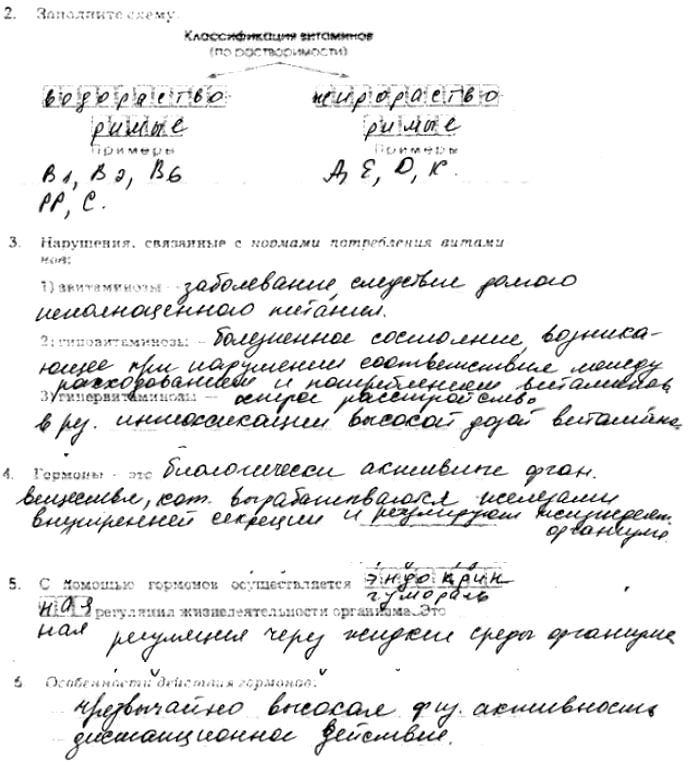 2. Заполните схему.
Классификация витаминов
(по растворимости)
водораство жирораство
римые римые
Примеры Примеры
В1, В2, В6 А, Е, D, К.
РР, С.
3. Нарушения, связанные с нормами потребления витами
нов:
1) авитаминозы - заболевание, следствие долгого
неполноценного питания.
2) гиповитаминозы - болезненное состояние, возника-
ющее при нарушении соответствия между
расходованием и потреблением витаминов
3) гипервитаминозы - острое расстройство
в рез. интоксикации высокой дозой витамина
4. Гормоны - это биологически активные орган.
вещества, кот. вырабатываются железами
внутренней секреции и регулируют жизнедеят.
организма
5. С помощью гормонов осуществляется эндокрин
гумораль
ная регуляция жизнедеятельности организма. Это
ная регуляция через жидкие среды организма
6 Особенности действия гормонов:
чрезвычайно высокая физ. активность
дистанционное действие.